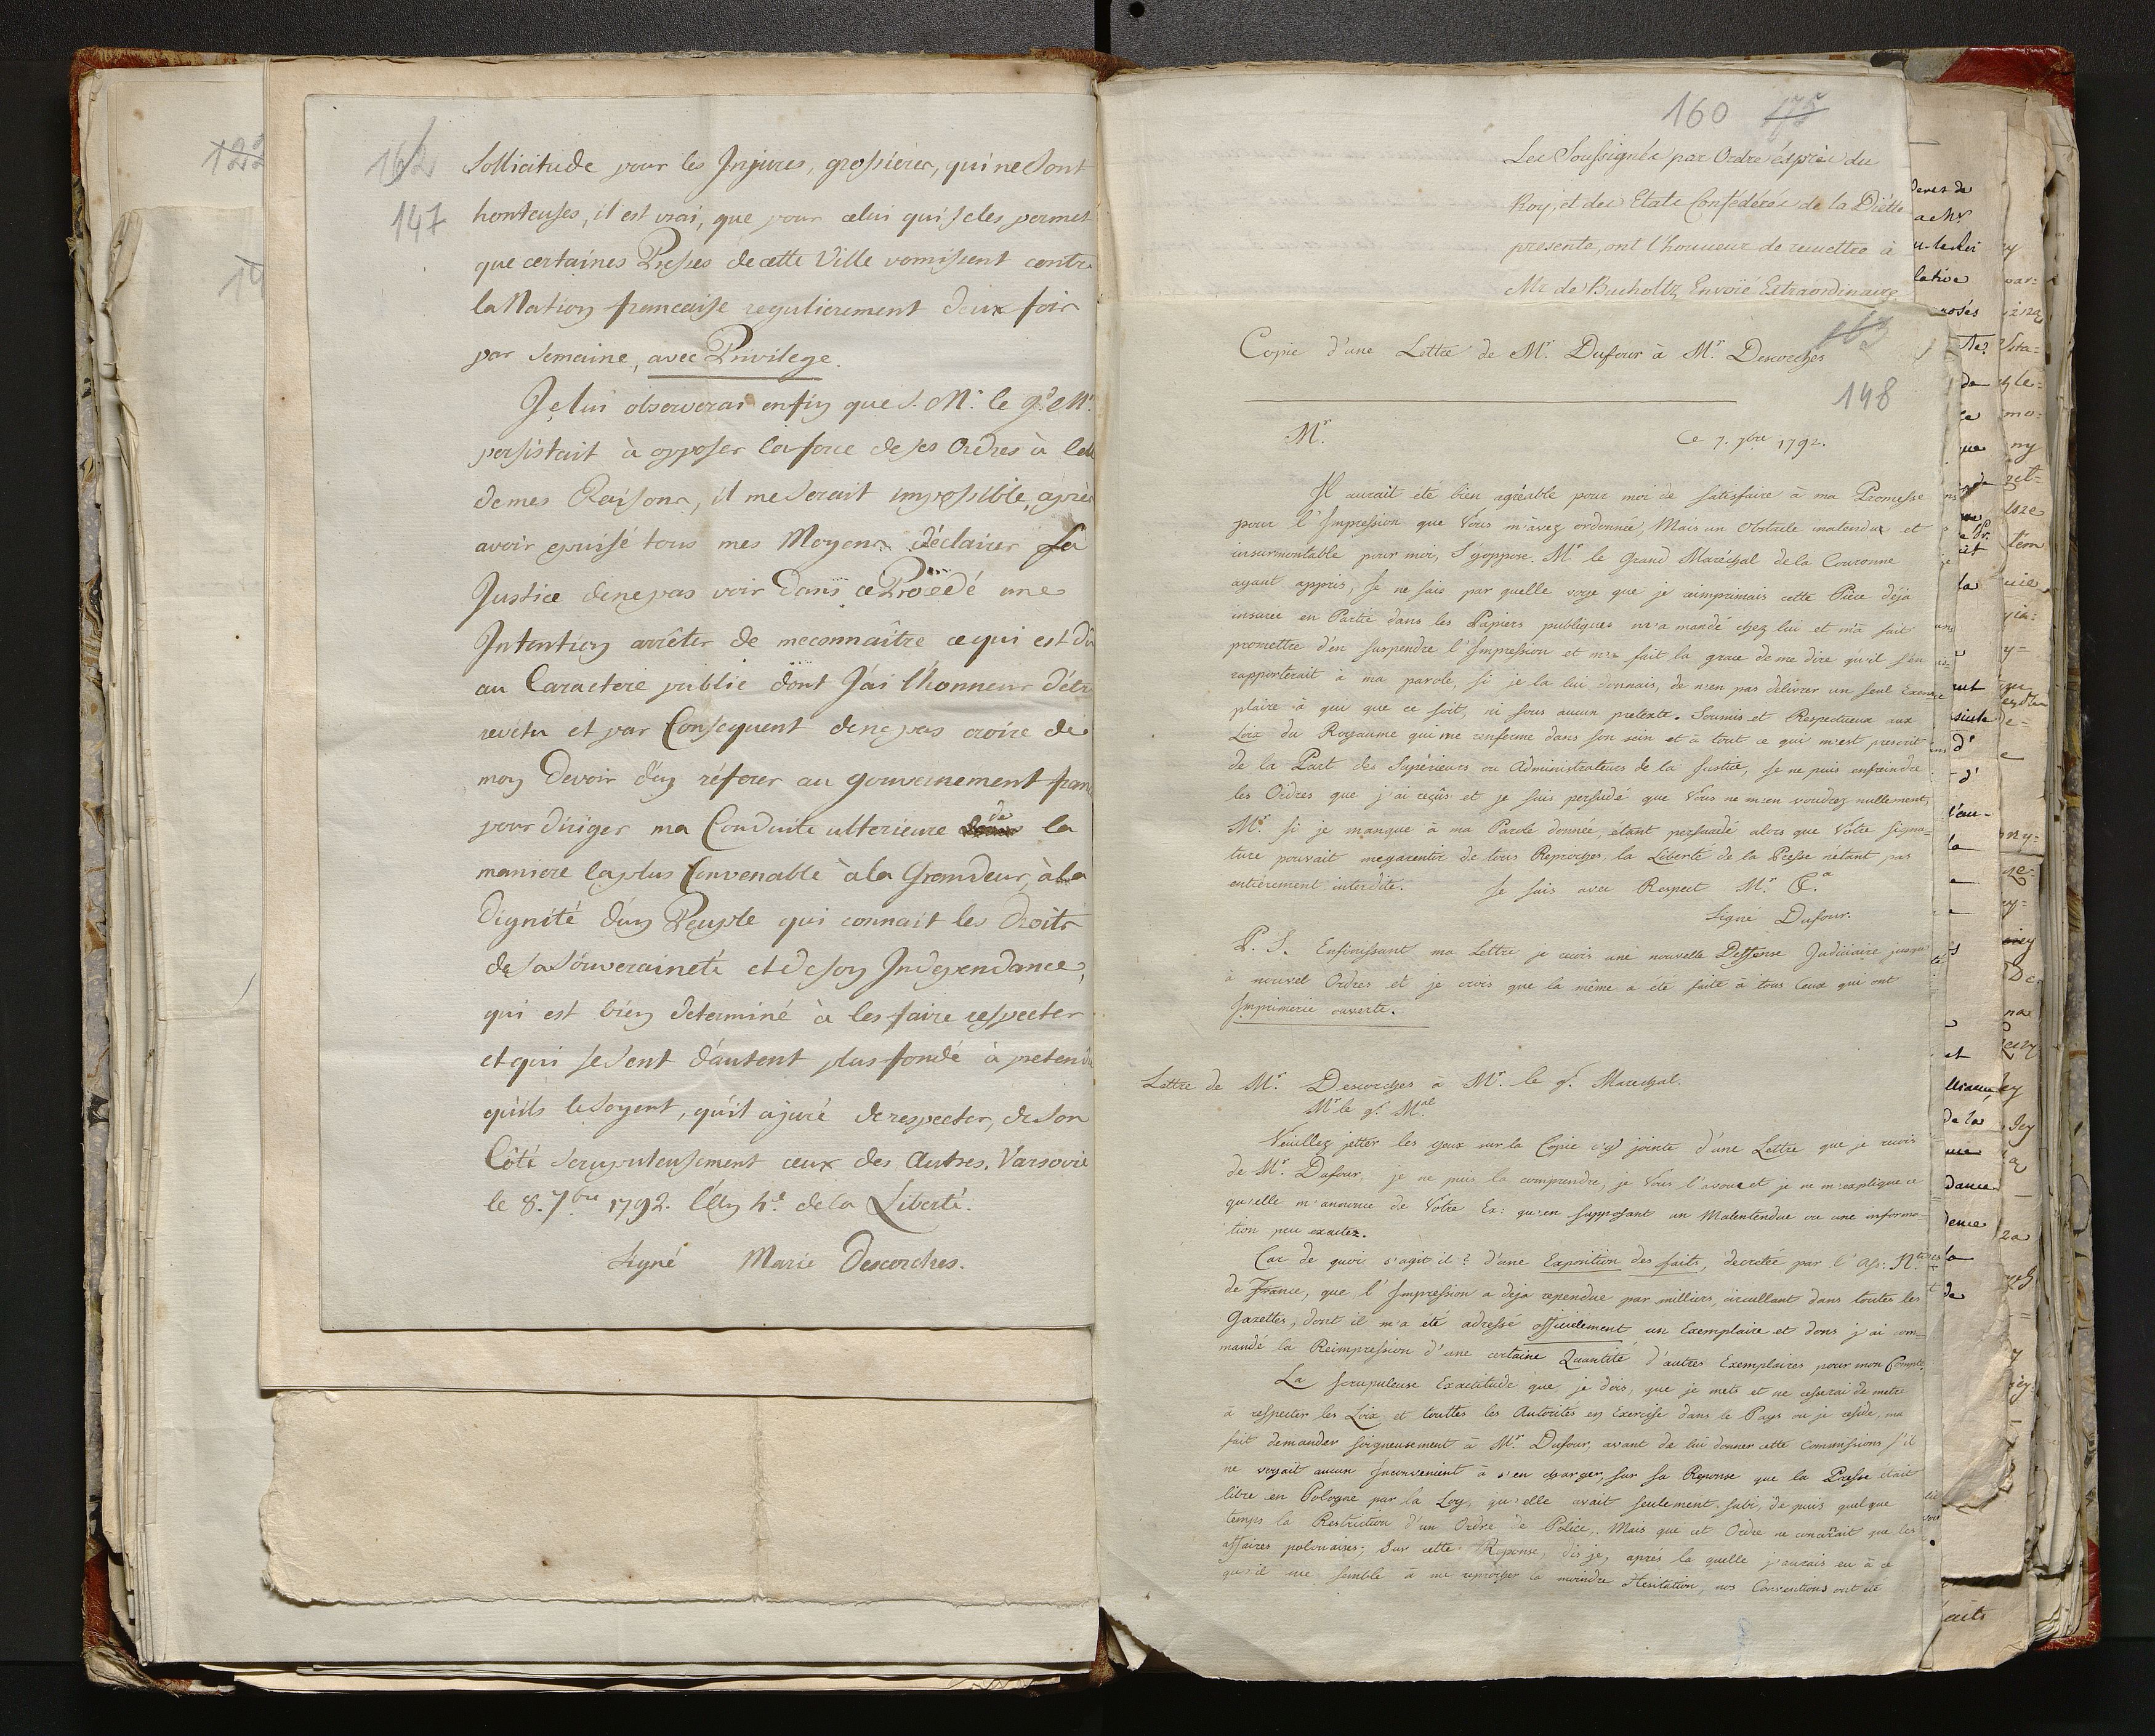 162
147
Sollicitude pour les Injures, grossieres, qui ne sont
honteuses, il est vrai, que pour celui qui se les permet
que certaines Presses de cette Ville vomissent contre
la Nation francaise regulierement deux fois
par Semaine, avec Privilege.
Je lui observerai enfin que s. Mr. le gd. M.
persistait à opposer la force de ses Ordres à celle
de mes Raisons, il me serait impossible, après
avoir epuisé tous mes Moyens d'éclairer sa
Justice de ne pas voir dans ce Procedé une
Intention arrêter de meconnaître ce qui est dû
au Caractere public dont J'ai l'honneur d'etre
revetu et par Consequent de ne pas croire de
mon Devoir d'en réferer au gouvernement fran
pour diriger ma Conduite ulterieure de la
maniere la plus Convenable à la Grandeur, à la
Dignité d'un Peuple qui connait les Droits
de sa Souveraineté et de son Independance,
qui est bien determiné à les faire respecter
et qui se sent d'autent plus fondé à pretendre
qu'ils le soyent, qu'il a juré de respecter, de son
Côté scrupuleusement ceux des Autres. Varsovie
le 8. 7bre 1792. l'An 4e. de la Liberté.
Signé Marie Descorches.
160 175
Les Soussignés par Ordre éxprès du
Roy, et des Etats Confédérés de la Diètte
presente, ont l'honneur de remettre à
Mr de Bucholtz Envoié Extraordinaire
163
Copie d'une Lettre de Mr. Dufour à Mr. Descorches
148
Mr. Ce 7. 7bre 1792.
Il aurait été bien agréable pour moi de satisfaire à ma Promesse
pour l'Impression que Vous m'avez ordonnée, Mais un obstacle inatendux et
insurmontable pour moi, S'y oppose. Mr le Grand Maréchal de la Couronne
ayant appris, Je ne sais par quelle voye que je reimprimais cette Pièce déja
inserée en Partie dans les Papiers publiques m'a mandé chez lui et m'a fait
promettre d'en suspendre l'Impression et m'a fait la grace de me dire qu'il s'en
rapporterait à ma parole, si je la lui donnais, de n'en pas délivrer un seul Exem
plaire à qui que ce soit, ni sous aucun pretexte. Soumis et Respectueux aux
Loix du Royaume qui me renferme dans son sein et à tout ce qui m'est prescrit
de la Part des Supérieurs ou Administrateurs de la Justice, Je ne puis enfreindre
les Ordres que j'ai reçûs et je suis persudé que Vous ne m'en voudrez nullement,
Mr. si je manque à ma Parole donnée, étant persuadé alors que Votre signa=
ture pouvait megarentir de tous Reproches, la Liberté de la Presse n'étant pas
entièrement interdite. Je suis avec Respect Mr. &.a
Signé Dufour.
P. S. Enfinissant ma Lettre je reçois une nouvelle Deffense Judiciaire jusqu
à nouvel Ordres et je crois que la même a été faite à tous Ceux qui ont
Imprimerie ouverte.
Lettre de Mr. Descorches à Mr. le gd. Marechal.
Mr le gd. Mal
Veuillez jetter les yeux sur la Copie cy jointe d'une Lettre que je reçois
de Mr. Dufour, je ne puis la comprendre, je Vous l'avoue et je ne m'explique ce
qu'elle m'annonce de Votre Ex: qu'en supposant un Malentendue ou une informa=
tion peu exactez.
Car de quoi s'agit il? d'une Exposition des faits, decretée par l'Ass: Nle
de France, que l'Impression a deja rependue par milliers, circullant dans toutes les
Gazettes, dont il m'a été adressé officielement un Exemplaire et dons j'ai com=
mandé la Reimpression d'une certaine Quantité d'autres Exemplaires pour mon Compte.
La scrupuleuse Exactitude que je dois, que je mets et ne cesserai de metre
à respecter les Loix et touttes les Autorités en Exercise dans le Pays ou je reside, ma
fait demander soigneusement à Mr. Dufour, avant de lui donner cette commissions s'il
ne voyait aucun Inconvenient à s'en charger, sur sa Reponse que la Presse était
libre en Pologne par la Loy, qu'elle avait seulement subi, de puis quelque
temps la Restriction d'un Ordre de Police, Mais que cet Ordre ne concernait que les
affaires polonaises; Sur cette Reponse, dis je, après la quelle j'aurais eu à ce
qu'il me semble à me reprocher la moindre Hesitation, nos Conventions ont été